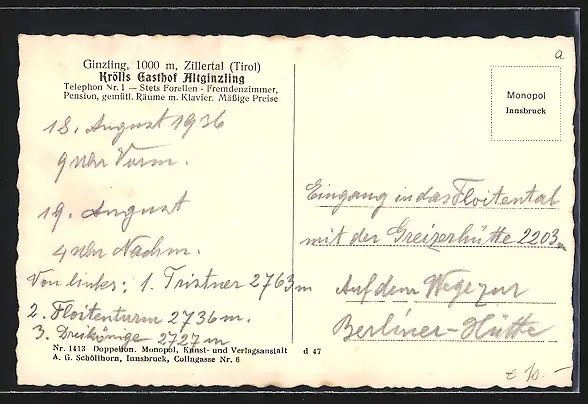 Ginzling, 1000 m, Zillertal (Tirol)
Krölls Gasthof Altginzling
Telephon Nr. 1 — Stets Forellen - Fremdenzimmer,
Pension, gemütl. Räume m. Klavier. Mäßige Preise
18. August 1936
9 Uhr Vorm.
19. August
4 Uhr Nachm.
Von links: 1. Tristner 2763 m
2. Floitenturm 2736 m.
3. Dreikönige 2727 m
Nr. 1413 Doppelton. Monopol, Kunst- und Verlagsanstalt
A. G. Schöllhorn, Innsbruck, Colingasse Nr. 6
d 47
a
Monopol
Innsbruck
Eingang in das Floitental
mit der Greizerhütte 2203 m
Auf dem Wege zur
Berliner-Hütte
€ 10.-